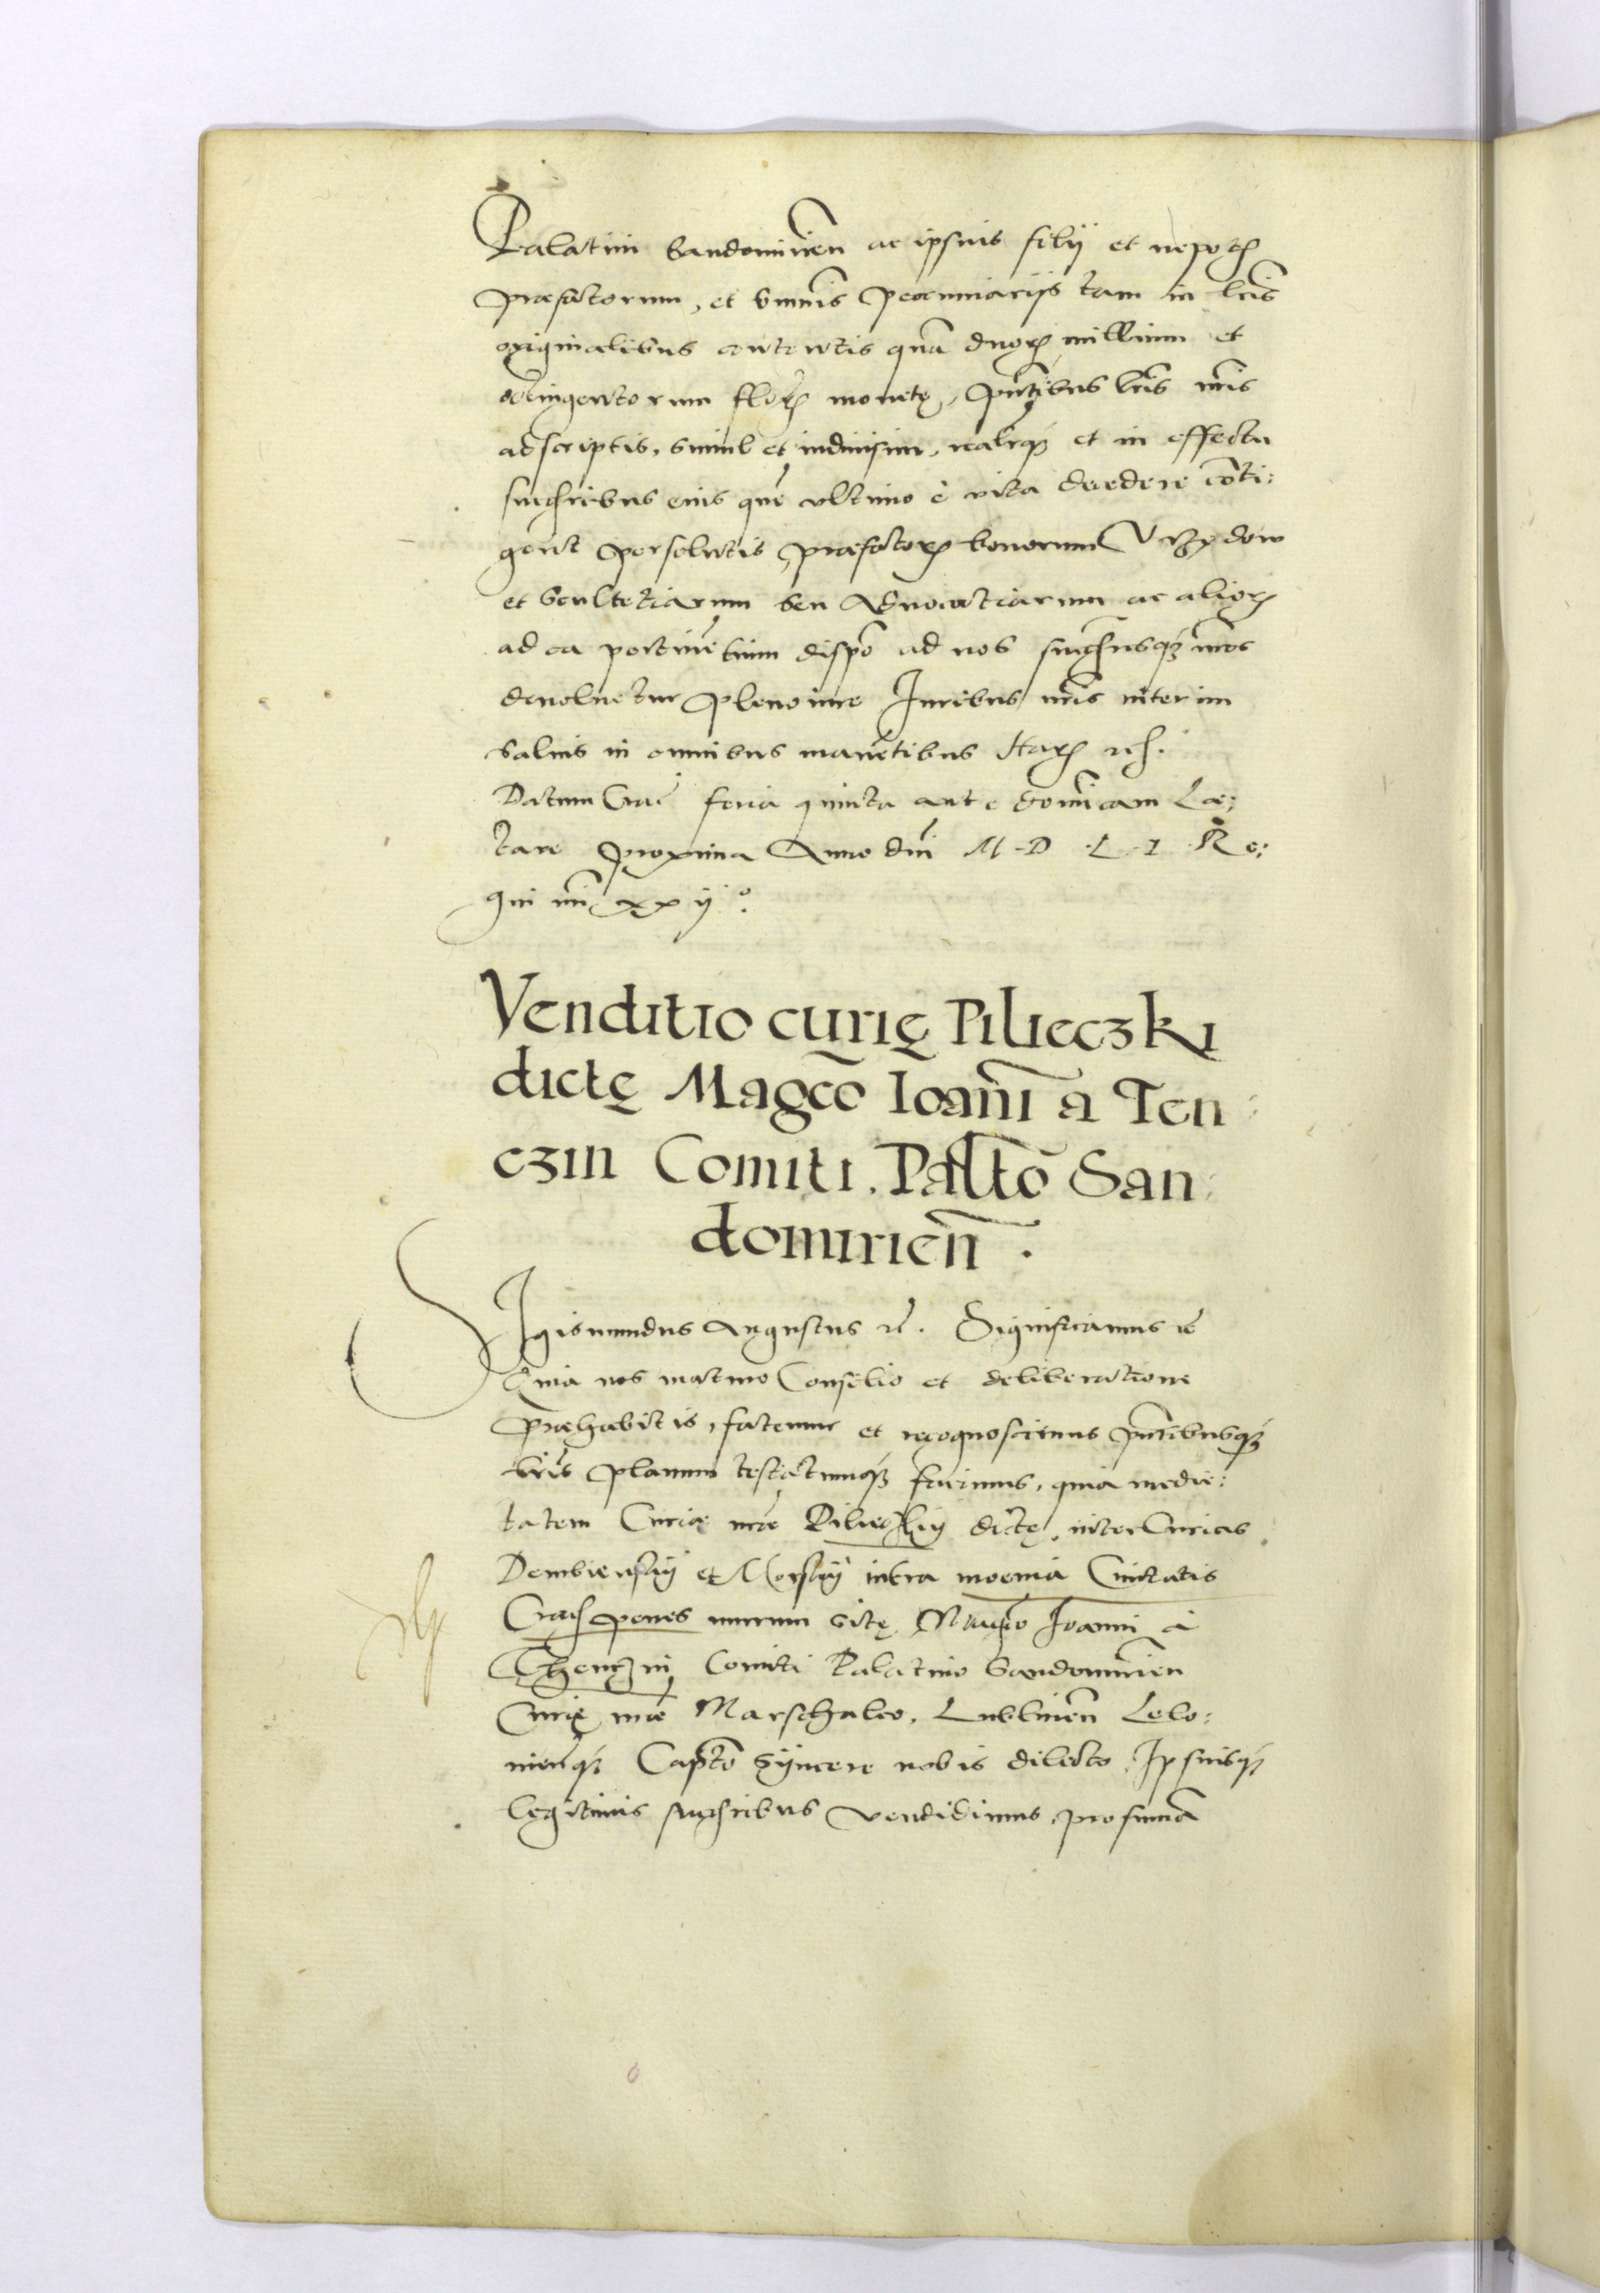 Palatini Sandomirien̄ ac ipsius filij et nepotꝫ
præfatorum, et sum̄is pecuniarijs tam in lr̄is
originalibus contentis quā duorꝫ millium et
octingentorum florꝫ monetę, pn̄tibus lr̄is nr̄is
adscriptis, simul et indiuisim, realiterqꝫ et in effectu
succ̄ribus eius quē vltimo è vita decedere cōti:
gerit persolutis, præfatorꝫ bonorum Vrzydow
et Scultetiarum seu Aduocatiarum ac aliorꝫ
ad ea pertinētium dispō ad nos succ̄resqꝫ nr̄os
deuoluetur pleno iure Iuribus nr̄is interim
saluis in omnibus manētibus Harꝫ rc̄.
Datum Crac̄ feria quinta ante domīcam Læ:
tare proxima Anno dnī M · D · L · I · Re:
gni nr̄i xxij°.
Venditio curię Pilieczki
dictę Magc̄o Ioan̄i a Ten:
czin Comiti. Pallto San:
domirien̄.
Sigismundus Augustus rc̄. Significamus rc̄
Quia nos maturo Consilio et deliberatione
præhabitis, fatemur et recognoscimus pn̄tibusqꝫ
lr̄is planum testatumqꝫ facimus, quia medie:
tatem Curiæ nr̄æ Pilieczkij dictę, inter Curias
Dembienskij et Morskij intra moenia Ciuitatis
Crac̄ penes murum sitę, Magc̄o Ioanni à
Thenczin Comiti Palatino Sandomirien̄
Curię nr̄æ Marschalco, Lublinen̄ Lelo:
uien̄qꝫ Captō syncere nobis dilecto, Ipsiusqꝫ
legitimis succ̄ribus vendidimus, pro summā